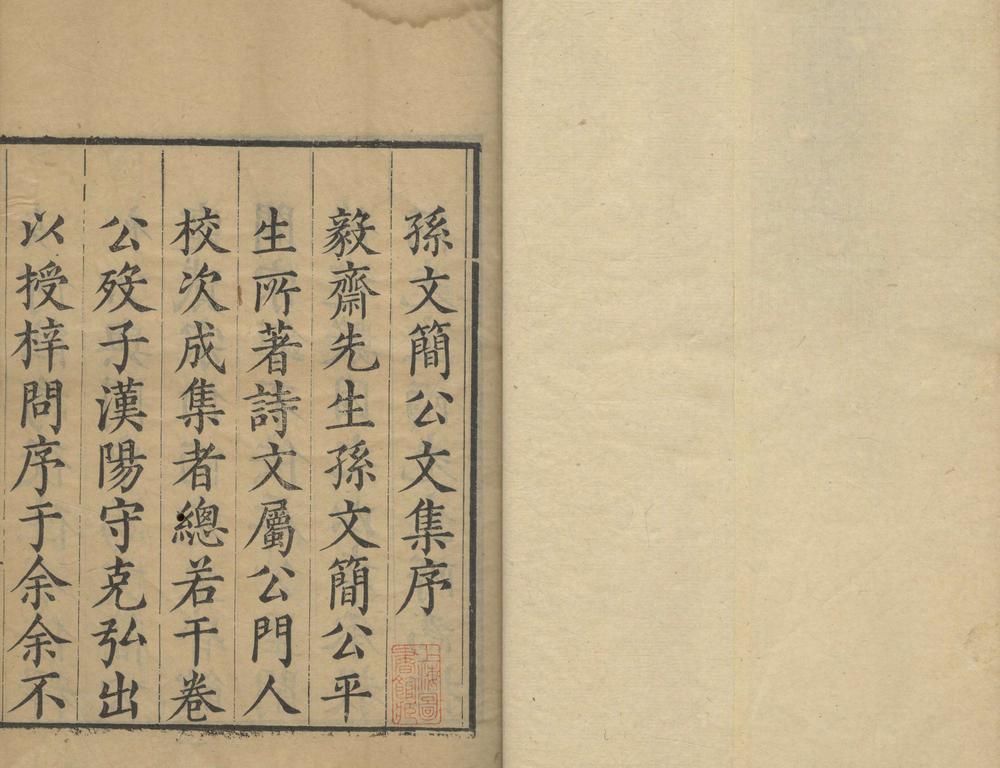 孫文簡公文集序
毅齋先生孫文簡公平
生所著詩文屬公門人
校次成集者總若干卷
公歿子漢陽守克弘出
以授梓問序于余余不
上海圖書館藏